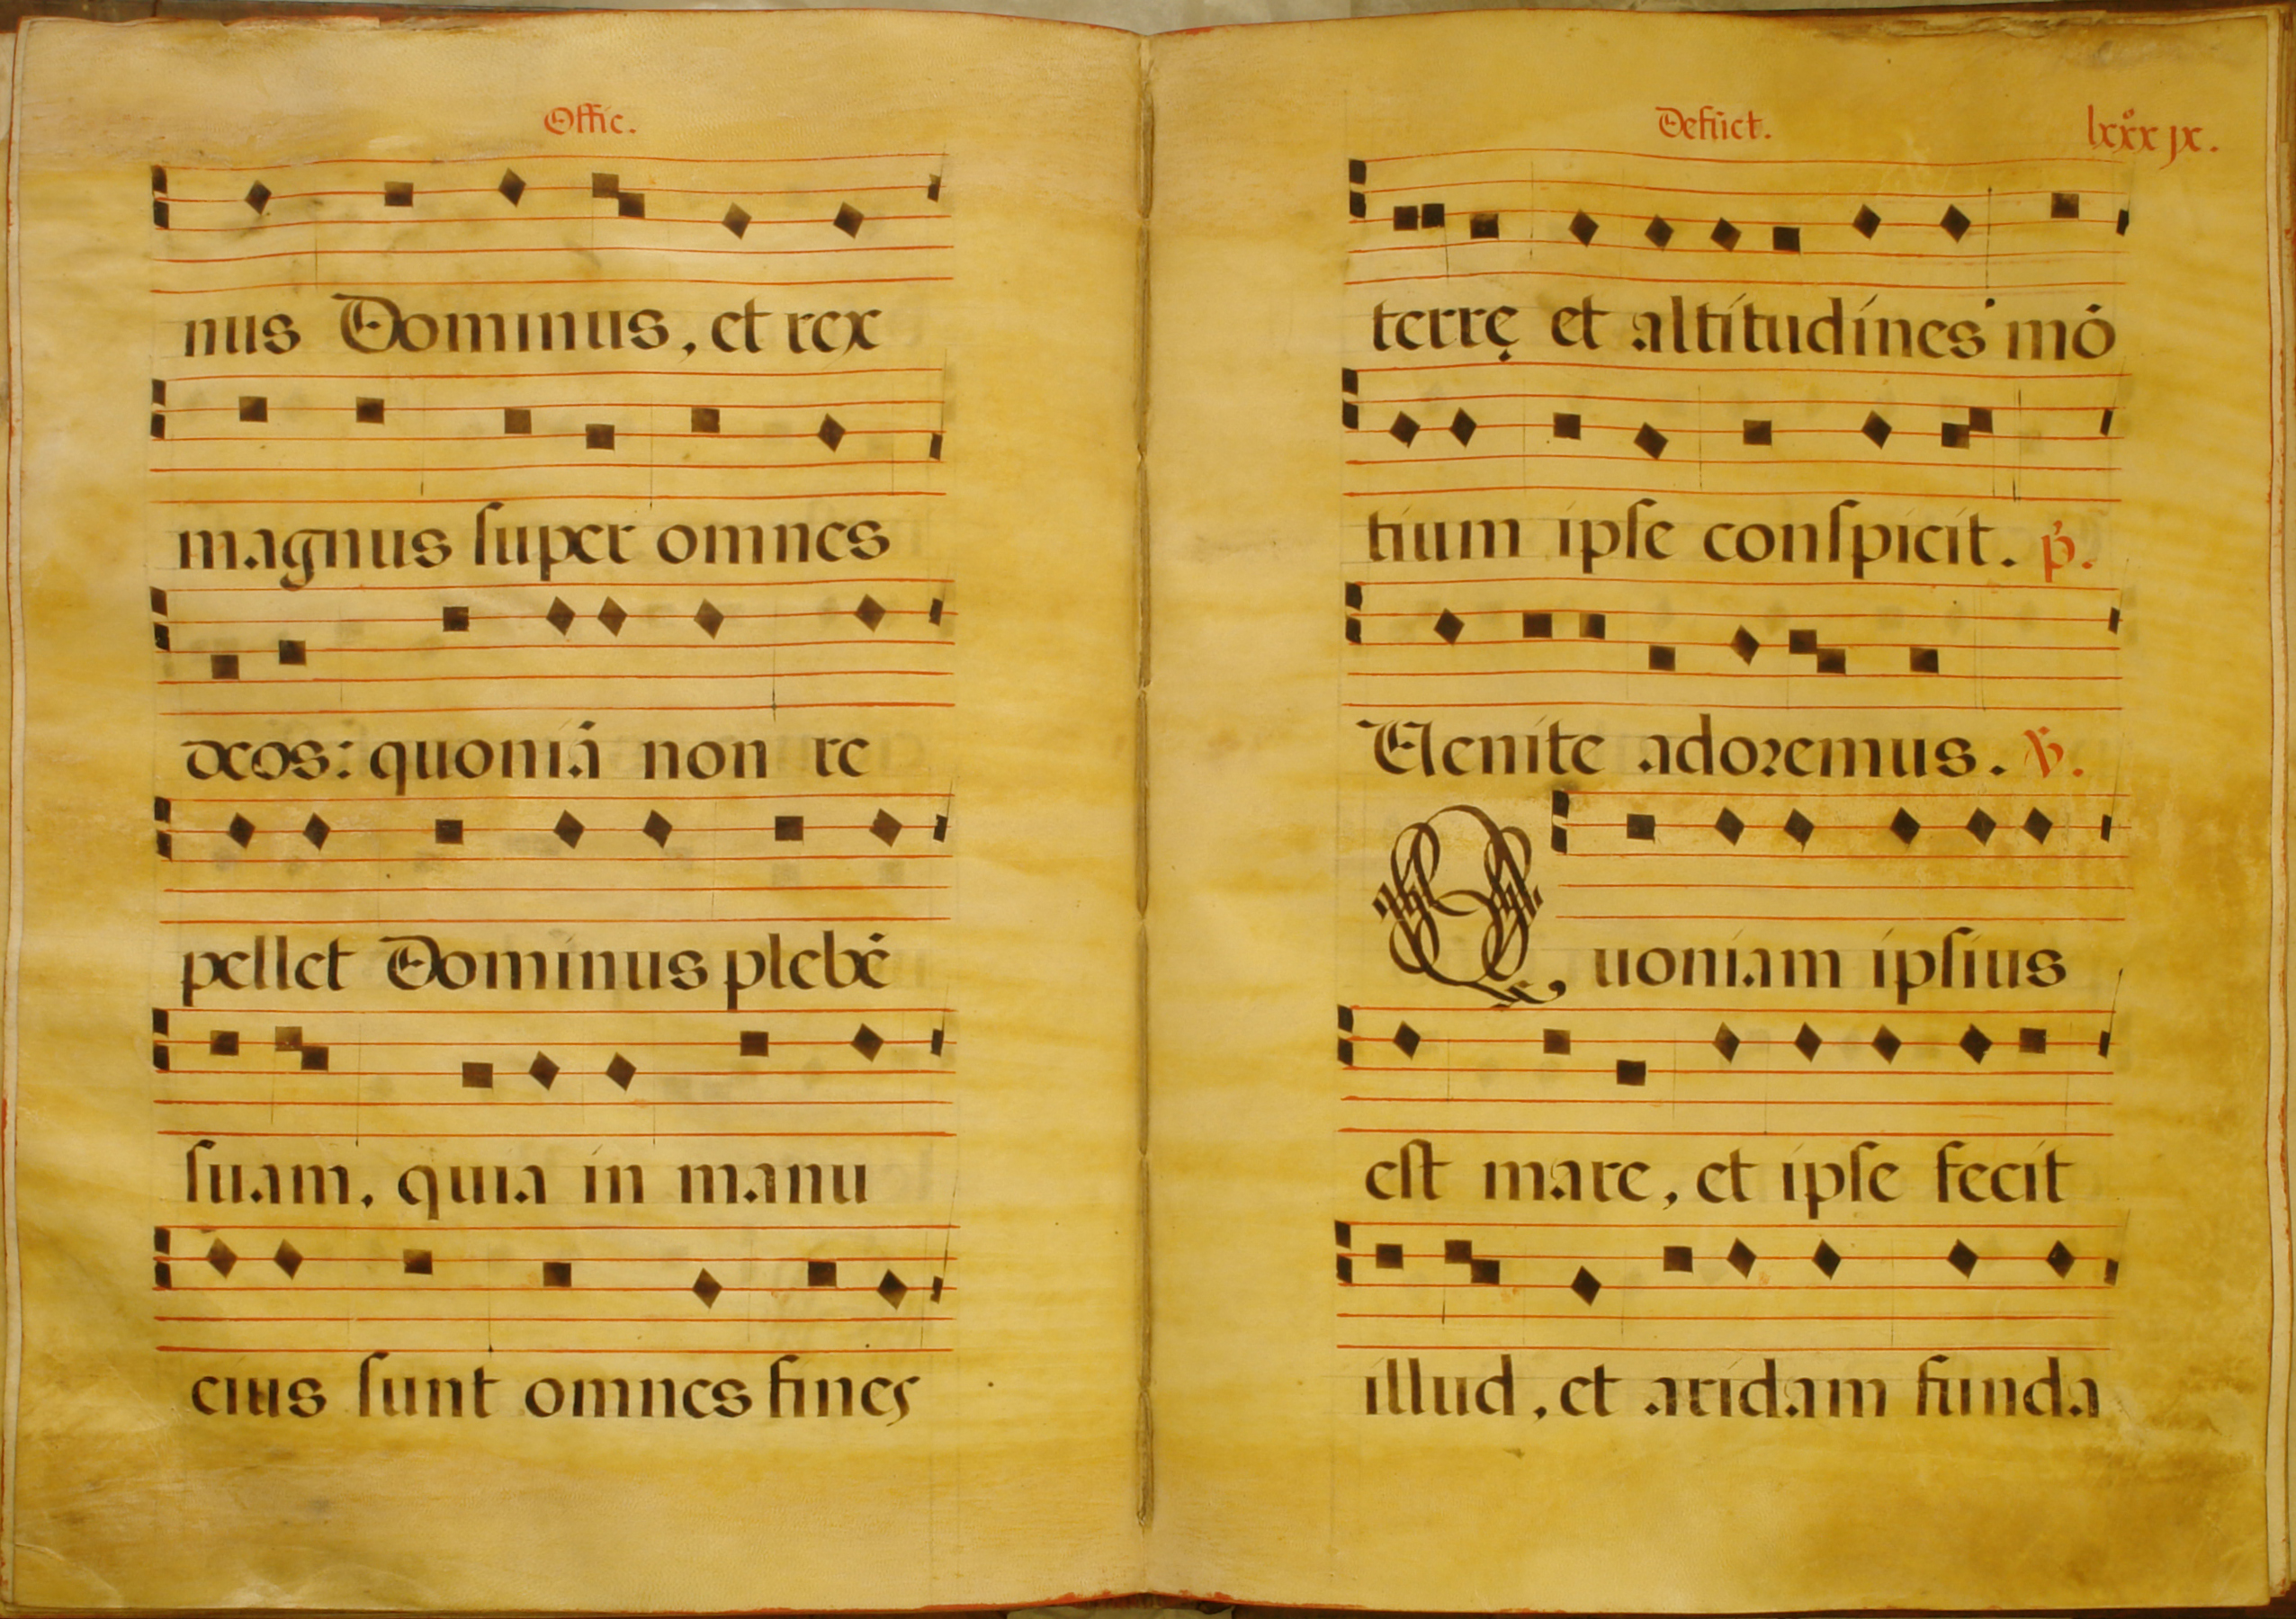 Offic.
nus Dominus, et rex
magnus ſuper omnes
deos: quoniā non re
pellet Dominus plebē
ſuam, quia in manu
eius ſunt omnes fines
Defūct. lxxxjx.
terrę et altitudines mō
tium ipſe conſpicit. p̄.
Uenite adoꝛemus. ℣.
Quoniam ipſius
eſt mare, et ipſe fecit
illud, et aridam funda